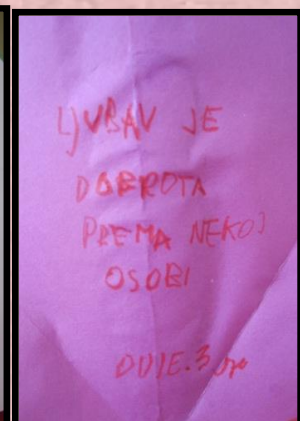 LJUBAV JE
DOBROTA
PREMA NEKOJ
OSOBI